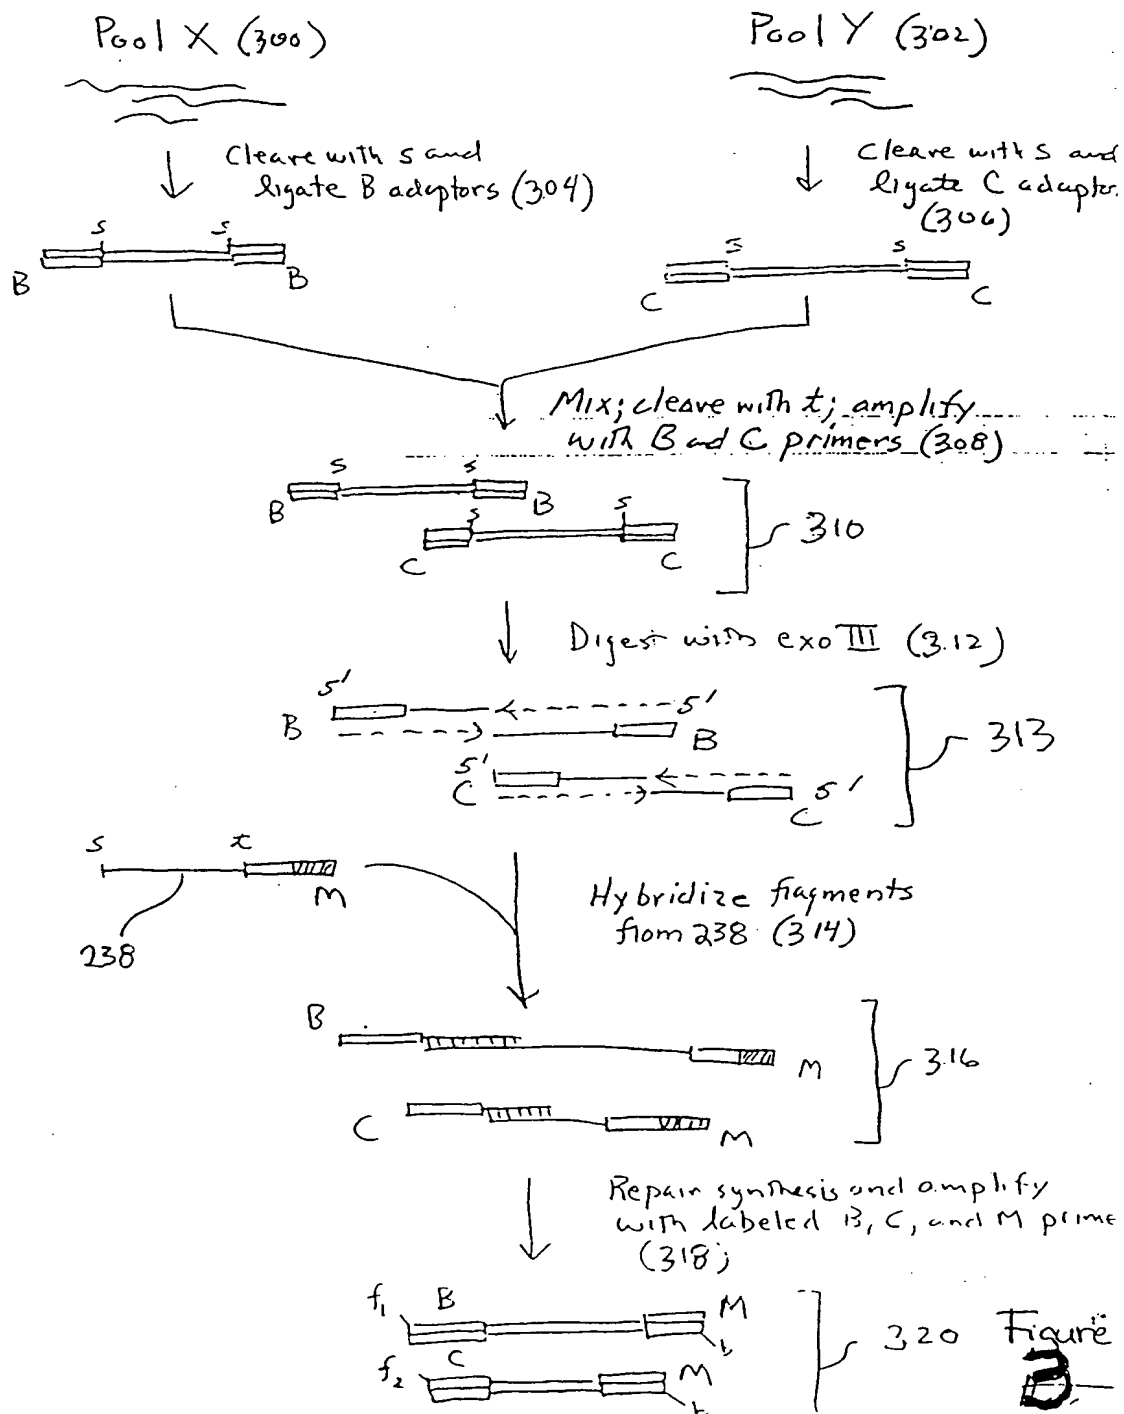 Pool X (300)
Pool Y (302)
Cleave with s and
ligate B adaptors (304)
Cleave with s and
ligate C adaptor.
(306)
s s
B B
s s
C C
Mix; cleave with t; amplify
with B and C primers (308)
s s
B B
s s
C C
310
Digest with exo III (312)
5' 5'
B B
5' 5'
C C
313
s t
M
238
Hybridize fragments
from 238 (314)
B
M
C
M
316
Repair synthesis and amplify
with labeled B, C, and M prime
(318)
f1 B M
b
C
f2 M
b
320
Figure
3